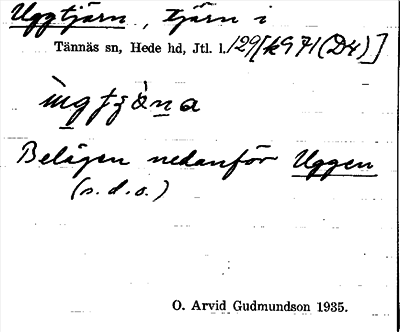 Uggtjärn, tjärn i
Tännäs sn, Hede hd, Jtl. l./29[k971(D4)]
Belägen nedanför Uggen
(s.d.o.)
O. Arvid Gudmundson 1935.